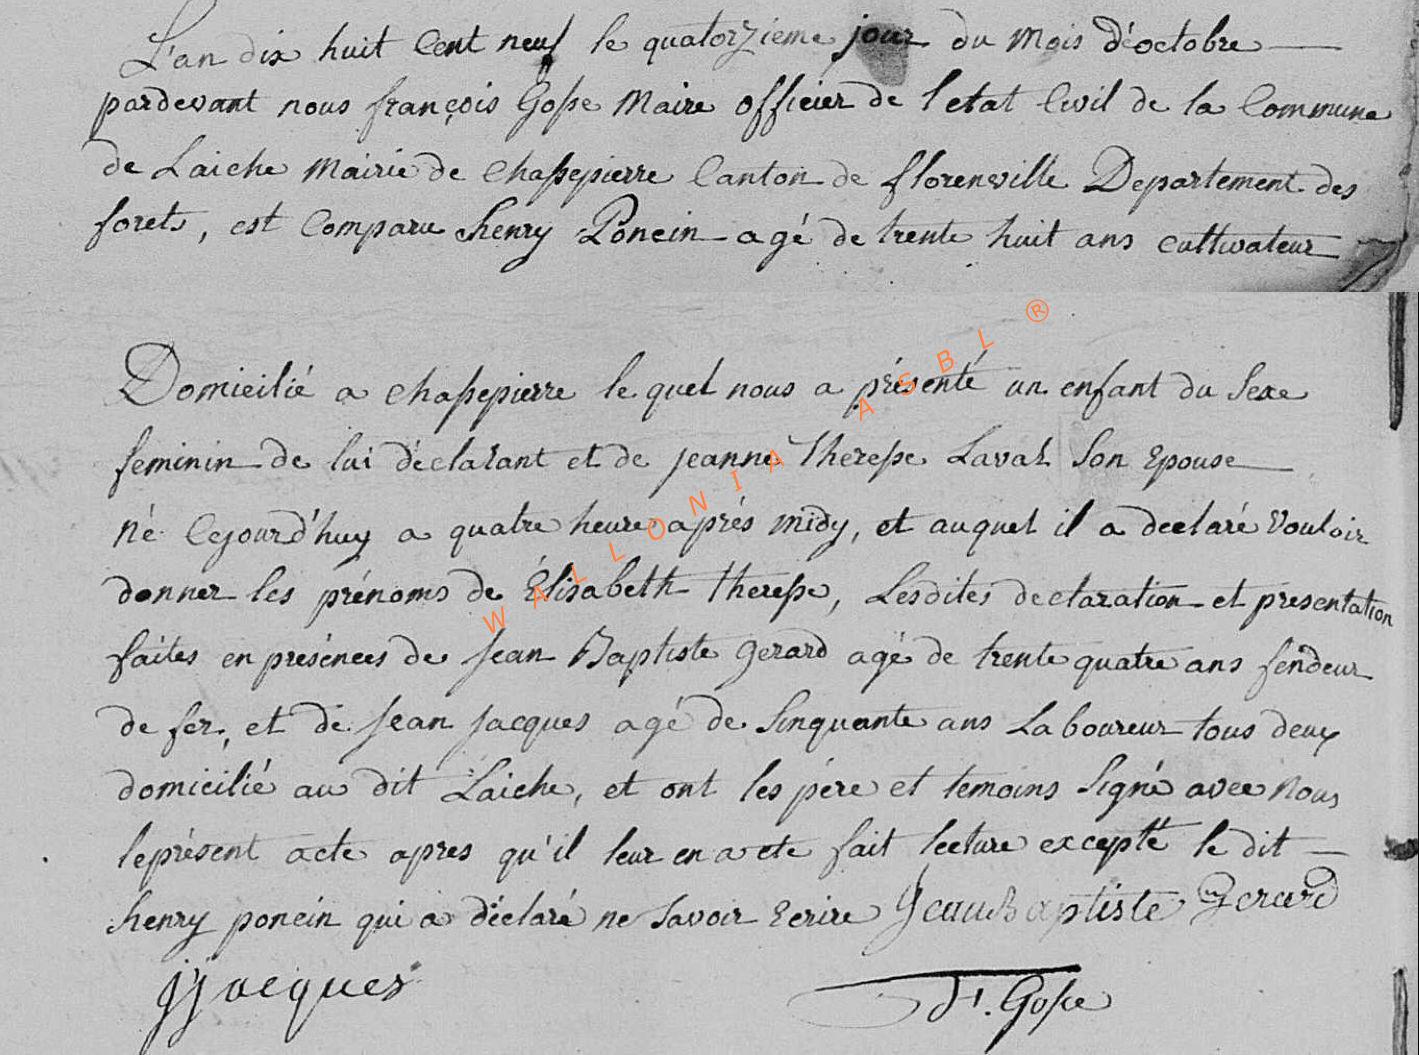 L'an dix huit Cent neuf le quatorzieme jour du mois d'éoctobre
pardevant nous françois Gosse Maire officier de l'etat Civil de la Commune
de Laiche Mairie de Chassepierre Canton de florenville Departement des
forets, est Comparu henry Poncin agé de trente huit ans cultivateur
Domicilié a chassepierre le quel nous a présenté un enfant du Sexe
feminin de lui déclarant et de jeanne Theresse Laval Son Epouse
né Cejourd'huy a quatre heure aprés midy, et auquel il a declaré Vouloir
donner les prénoms de Élisabeth theresse, Lesdites declaration et presentation
faites en présences de Jean Baptiste gerard agé de trente quatre ans fendeur
de fer, et de Jean Jacques agé de Sinquante ans Laboureur tous deux
domicilié au dit Laiche, et ont les pére et temoins Signé avec Nous
le présent acte apres qu'il leur en a ete fait lecture excepté le dit
henry poncin qui a déclaré ne Savoir Ecrire Jean Baptiste Gerard
JJacques
f. Gosse
WALLONIA ASBL ®